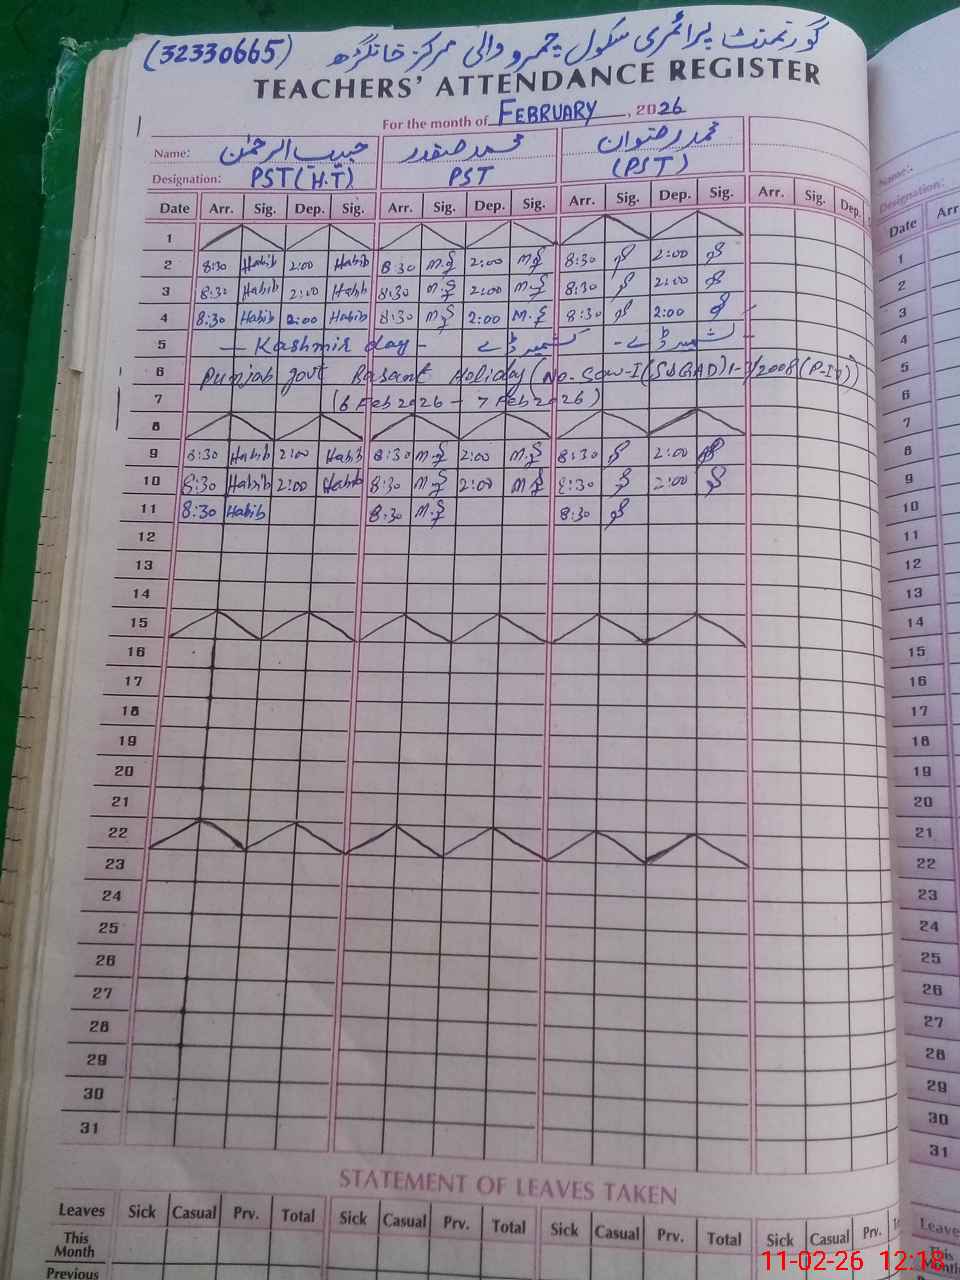 گورنمنٹ پرائمری سکول چمرو والی مرکز خانگڑھ (32330665)
TEACHERS' ATTENDANCE REGISTER
For the month of FEBRUARY, 2026
Name: حبیب الرحمٰن محمد صفدر محمد رضوان
Designation: PST (H.T) PST (PST)
Date Arr. Sig. Dep. Sig. Arr. Sig. Dep. Sig. Arr. Sig. Dep. Sig. Arr. Sig. Dep.
1
2 8:30 Habib 2:00 Habib 8:30 2:00 8:30 2:00
3 8:30 Habib 2:00 Habib 8:30 2:00 8:30 2:00
4 8:30 Habib 2:00 Habib 8:30 2:00 8:30 2:00
5 — Kashmir day - کشمیر ڈے - کشمیر ڈے -
6 Punjab govt Basant Holiday (No. SOW-I (S&GAD)
7 (6 Feb 2026 – 7 Feb 2026)
8
9 8:30 Habib 2:00 Habib 8:30 2:00 8:30 2:00
10 8:30 Habib 2:00 Habib 8:30 2:00 8:30 2:00
11 8:30 Habib 8:30 8:30
12
13
14
15
16
17
18
19
20
21
22
23
24
25
26
27
28
29
30
31
STATEMENT OF LEAVES TAKEN
Leaves Sick Casual Prv. Total Sick Casual Prv. Total Sick Casual Prv. Total Sick Casual Prv.
This Month
Previous
Name:
Designation:
Date Arr
1
2
3
4
5
6
7
8
9
10
11
12
13
14
15
16
17
18
19
20
21
22
23
24
25
26
27
28
29
30
31
Leave
This
Mont
Previo
11-02-26 12:18